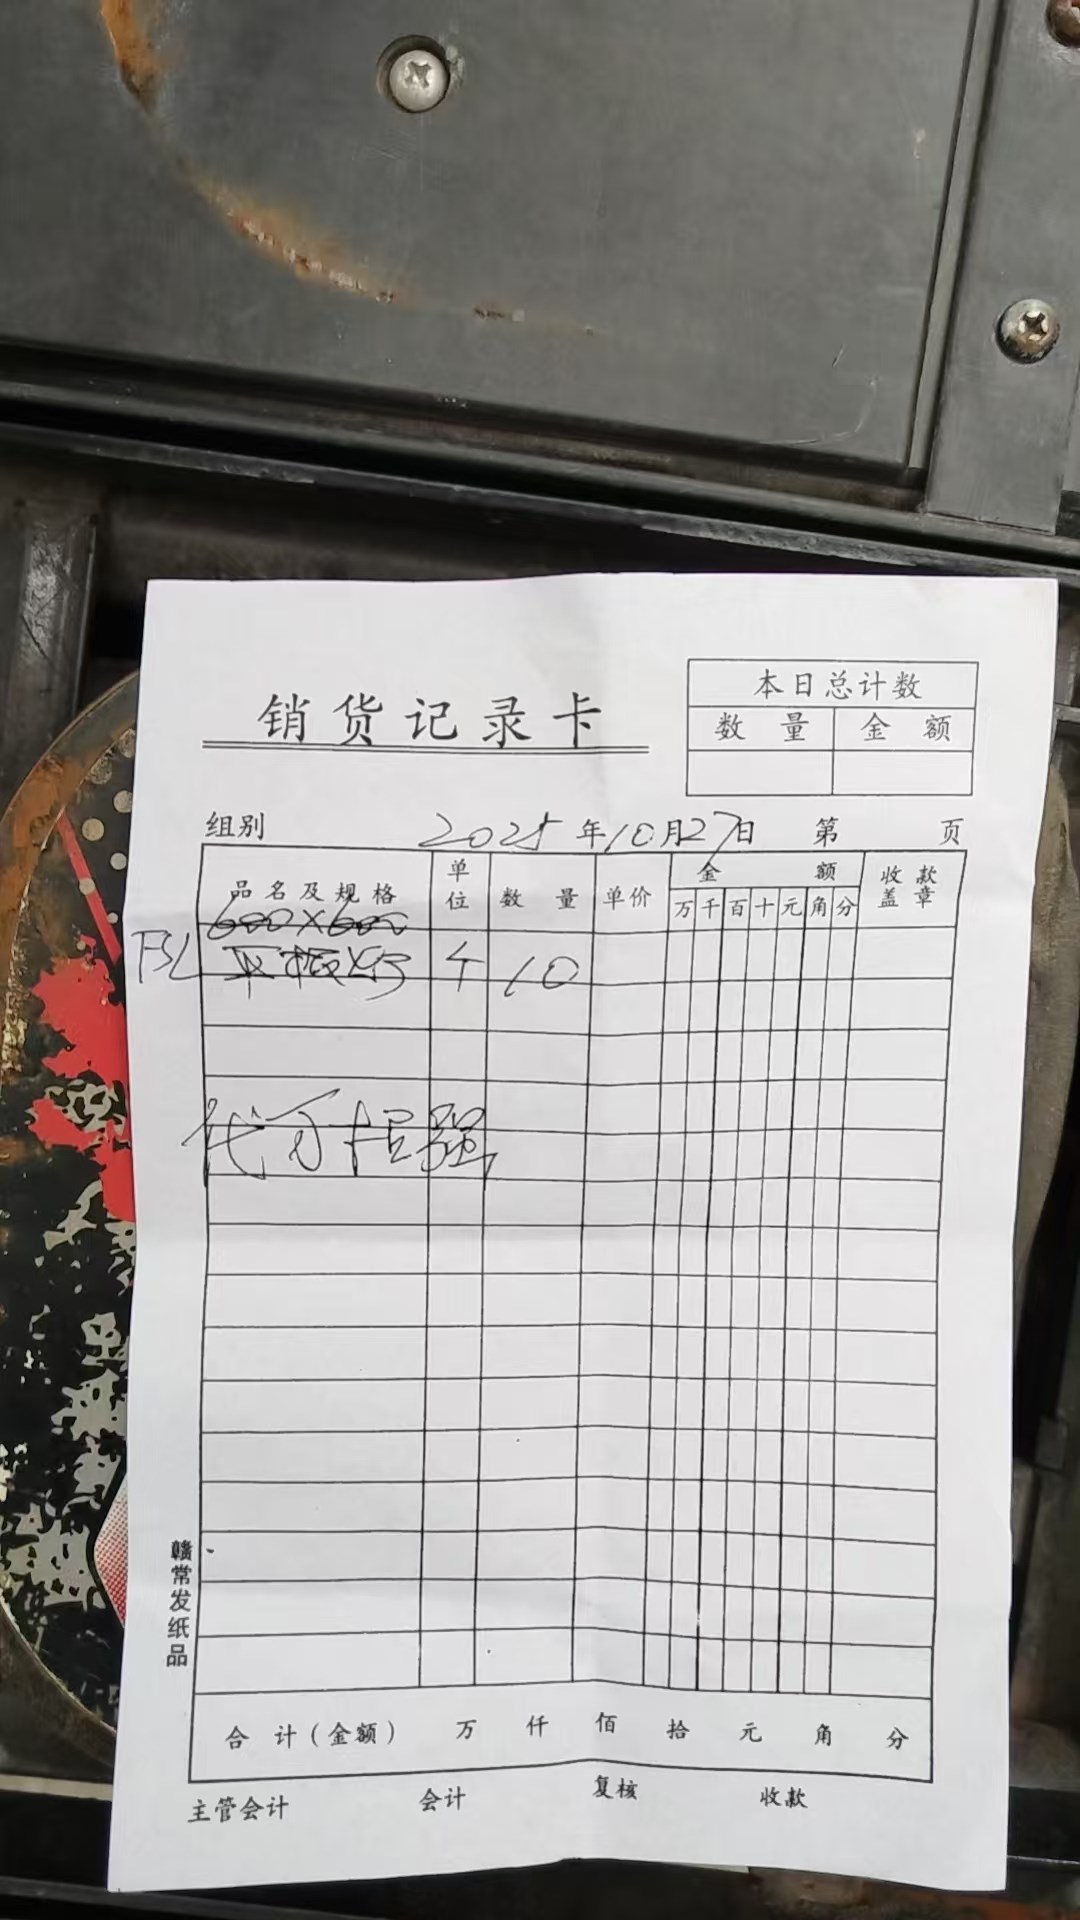 本日总计数
销货记录卡
数量 金额
组别 2025年10月27日 第 页
品名及规格 单位 数量 单价 金额 收款盖章
万千百十元角分
600×600
FSL 平板灯 个 10
代可拒强
赣常发纸品
合计(金额) 万 仟 佰 拾 元 角 分
主管会计 会计 复核 收款